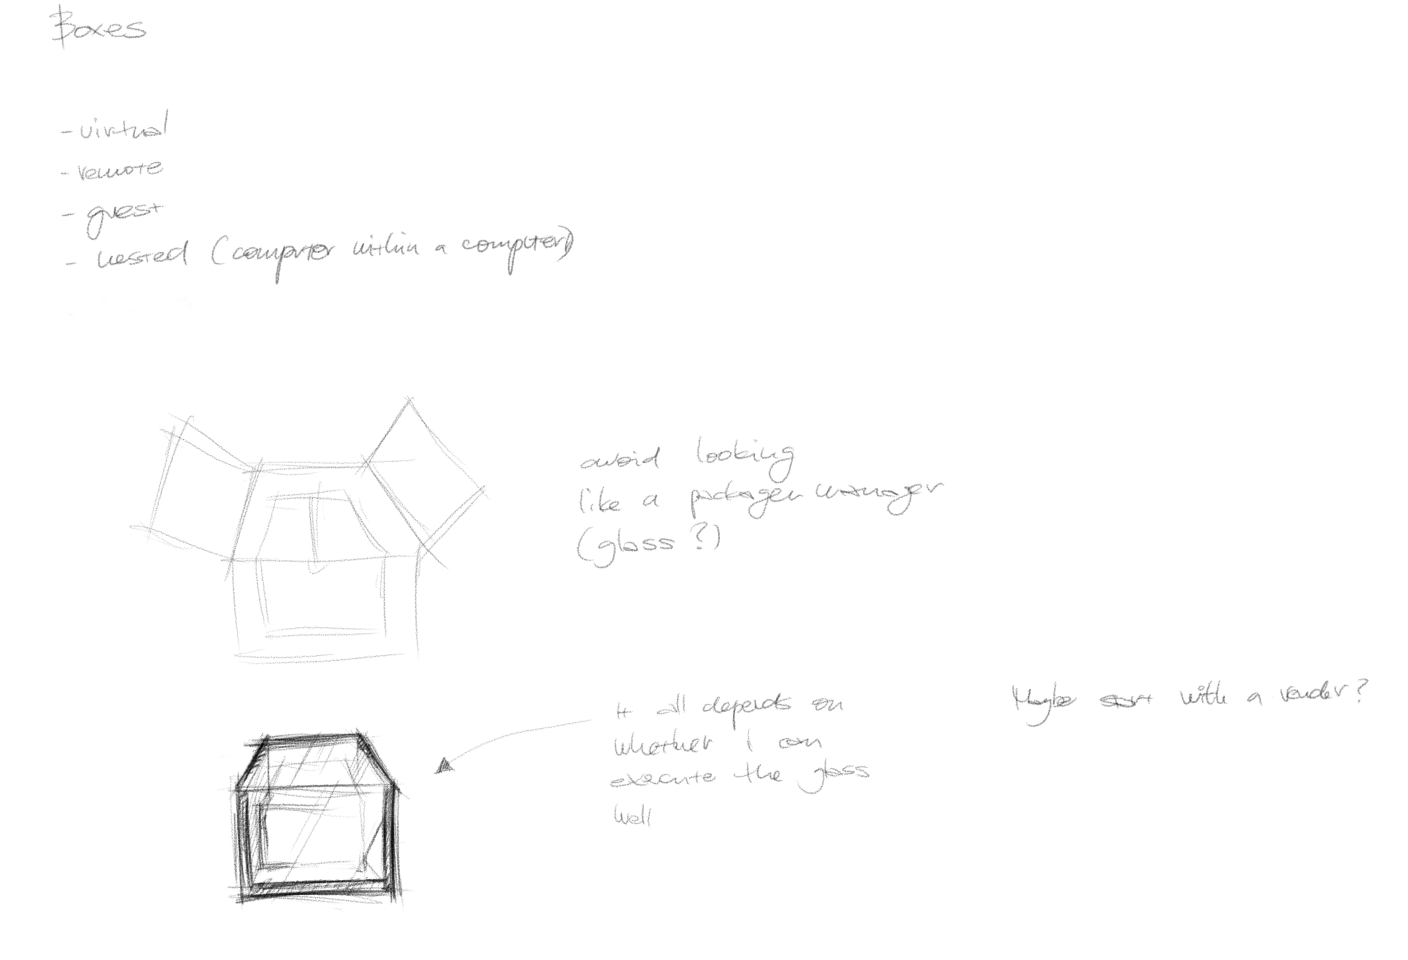 Boxes
- virtual
- remote
- guest
- nested (computer within a computer)
avoid looking
like a package manager
(glass?)
It all depends on
whether I can
execute the glass
well
Maybe start with a render?